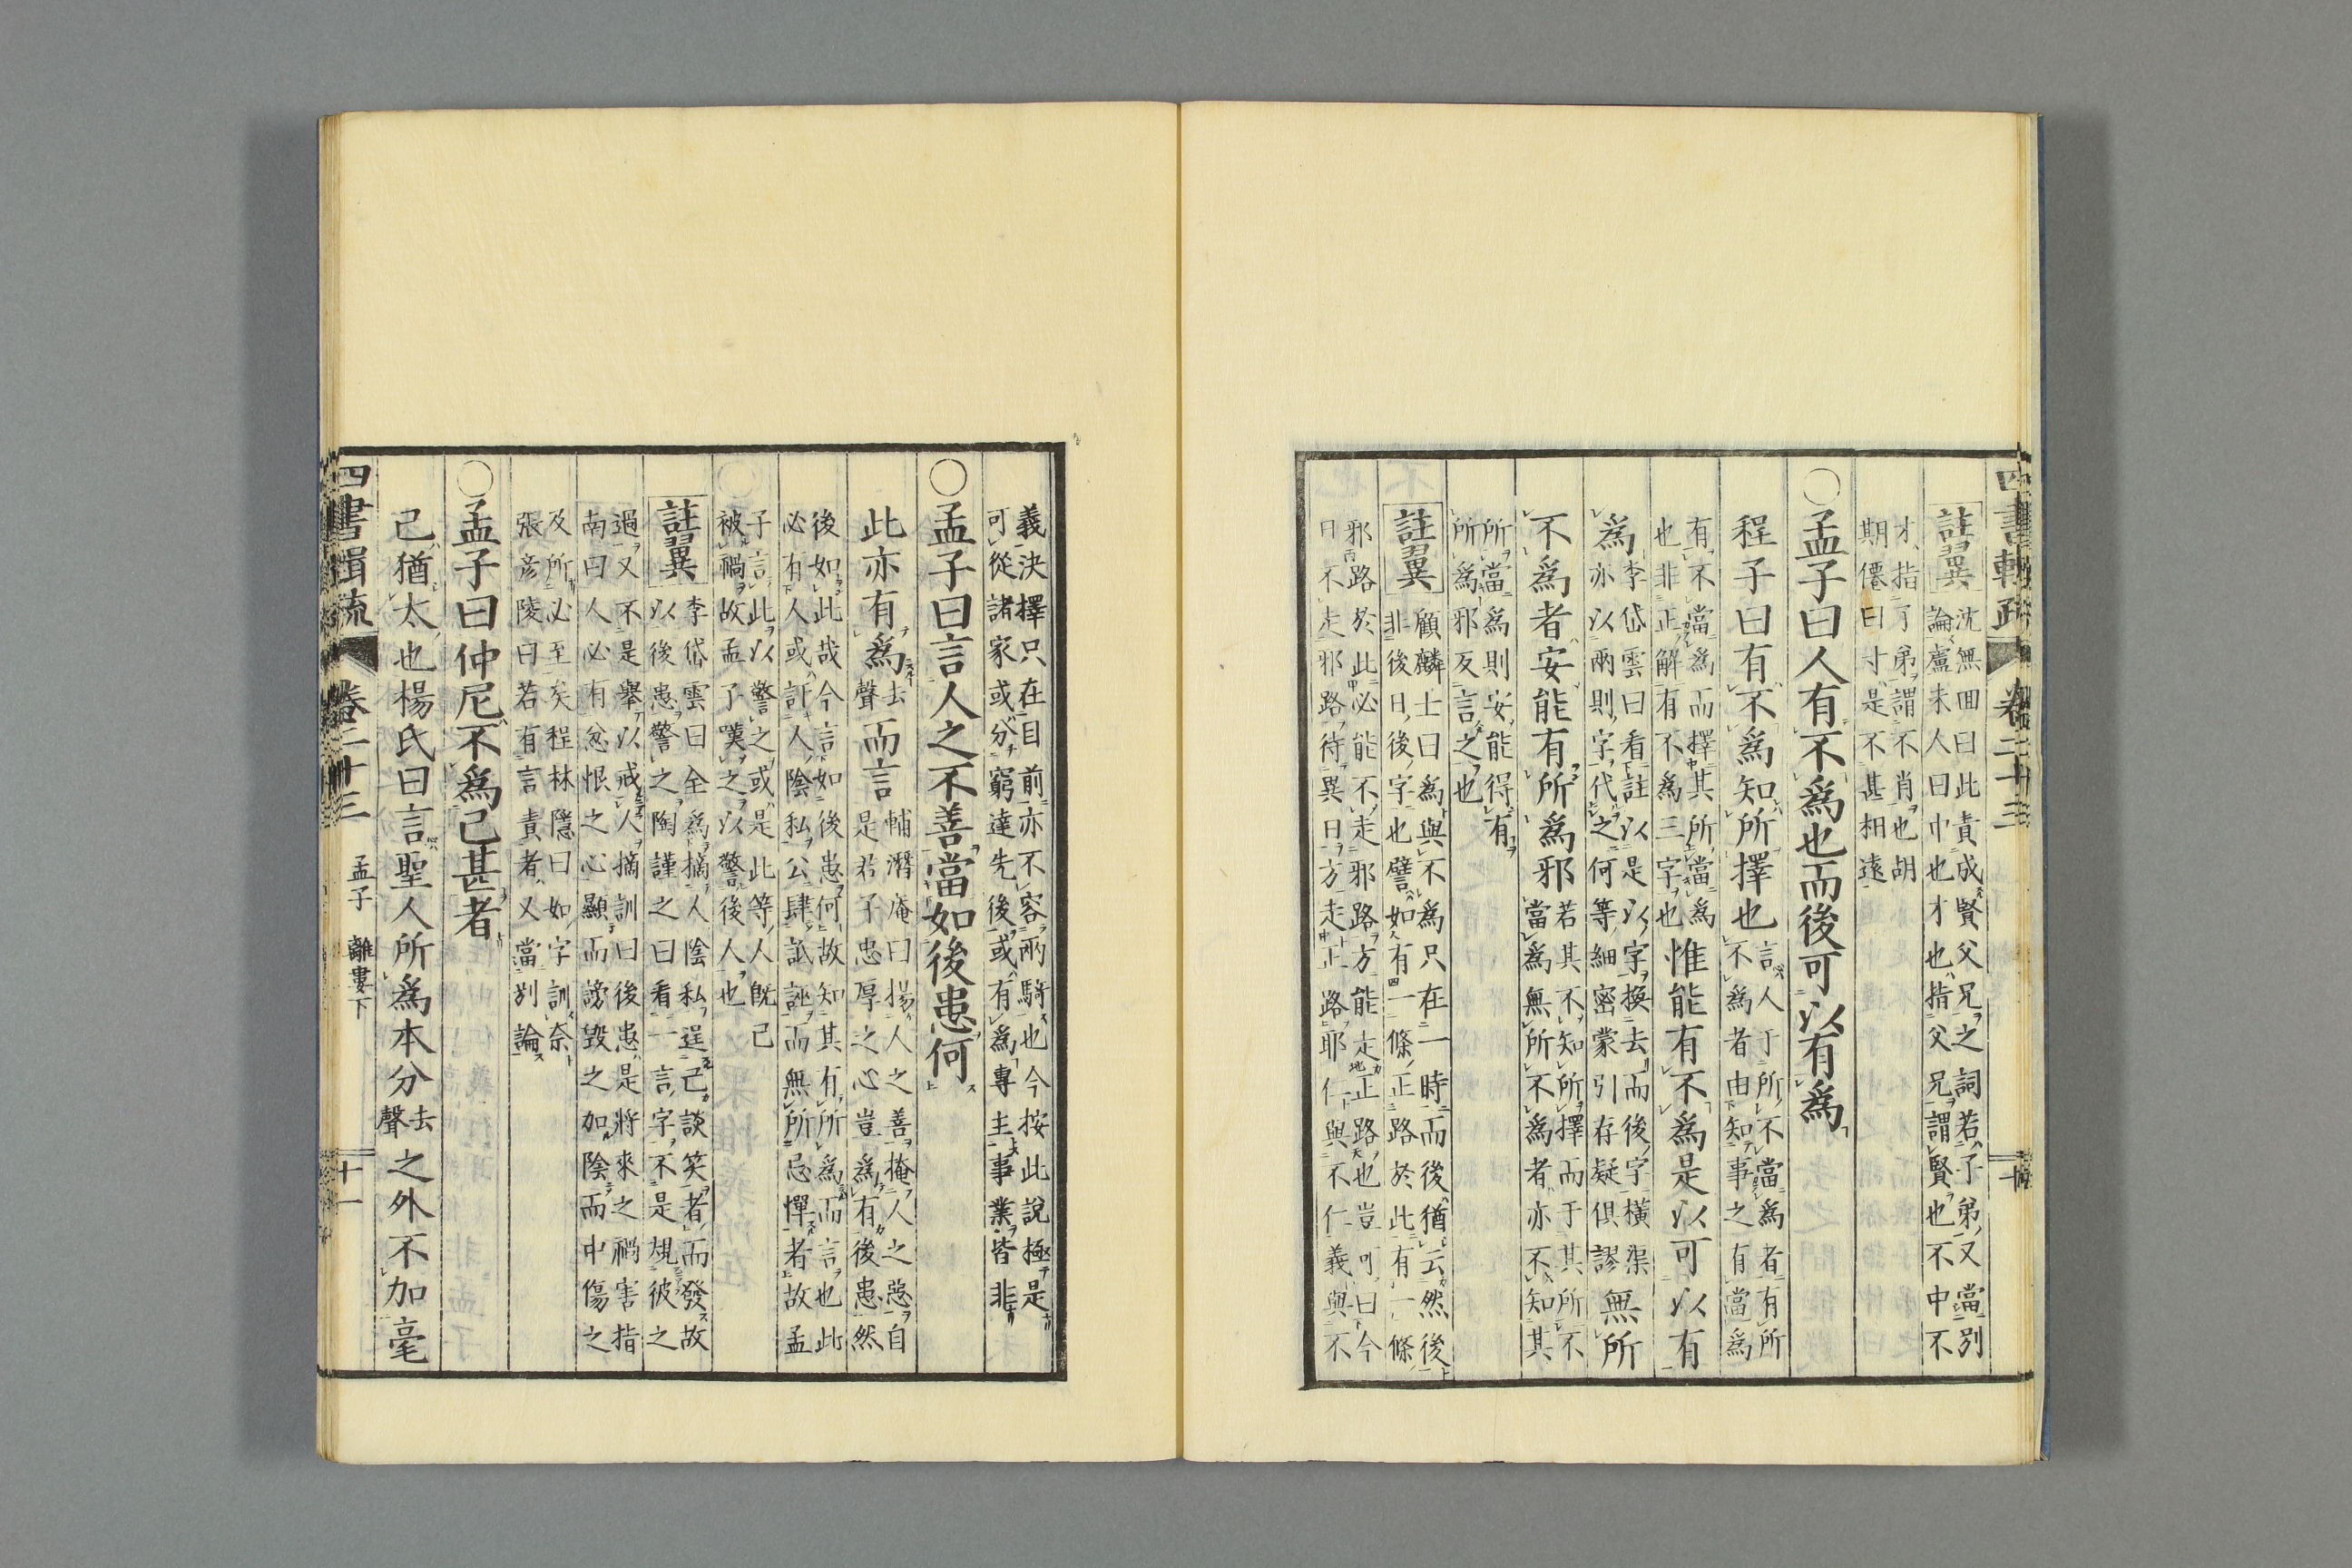 四書輯疏 卷二十三 十
註翼 沈無回曰此責成賢父兄之詞若子弟又當別
論盧未人曰中也才也指父兄謂賢也不中不
才指子弟謂不肖也胡
期僊曰寸是不甚相遠
○孟子曰人有不爲也而後可以有爲
程子曰有不爲知所擇也 言人于所不當爲者有所
不爲者由知事之有當爲
有不當爲而擇其所當爲
也非正解有不爲三字也 惟能有不爲是以可以有
爲 李岱雲曰看註以是以字換去而後字橫渠
亦以兩則字代之何等細密蒙引存疑俱謬 無所
不爲者安能有所爲邪 若其不知所擇而于其所不
當爲無所不爲者亦不知其
所當爲則安能得有
所爲邪反言之也
註翼 顧麟士曰爲與不爲只在一時而後猶云然後
非後日後字也譬如有一條正路於此有一條
邪路於此必能不走邪路方能走正路也豈可曰今
日不走邪路待異日方走正路耶仁與不仁義與不
義決擇只在目前亦不容兩騎也今按此說極是
可從諸家或分窮達先後或有爲專主事業皆非
○孟子曰言人之不善當如後患何
此亦有爲 去
聲 而言 輔潛庵曰揚人之善掩人之惡自
是君子忠厚之心豈爲有後患然
後如此哉今言如後患何故知其有所爲而言也此
必有人或訐人陰私公肆詆誣而無所忌憚者故孟
子言此以警之或是此等人既已
被禍故孟子嘆之以警後人也
註翼 李岱雲曰全爲摘人陰私逞己談笑者而發故
以後患警之陶謹之曰看一言字不是規彼之
過又不是舉以戒人摘訓曰後患是將來之禍害指
南曰人必有忿恨之心顯而謗毀之加陰而中傷之
及所必至矣程林隱曰如字訓奈
張彥陵曰若有言責者又當別論
○孟子曰仲尼不爲已甚者
已猶太也楊氏曰言聖人所爲本分 去
聲 之外不加毫
四書輯疏 卷二十三 孟子 離婁下 十一